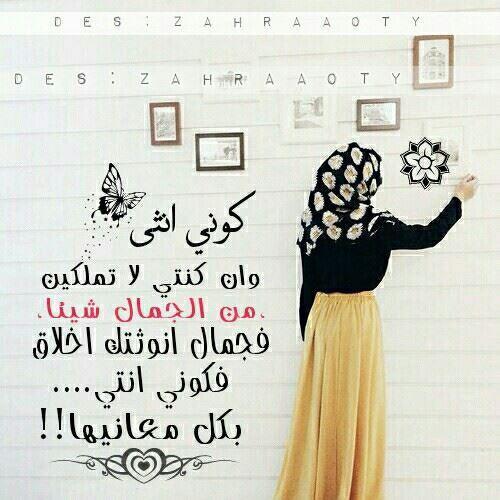 DES:ZAHRAAOTY
DES:ZAHRAAOTY
كوني انثى
وان كنتي لا تملكين
،من الجمال شيئا،
فجمال انوثتك اخلاق
فكوني انتي....
بكل معانيها!!